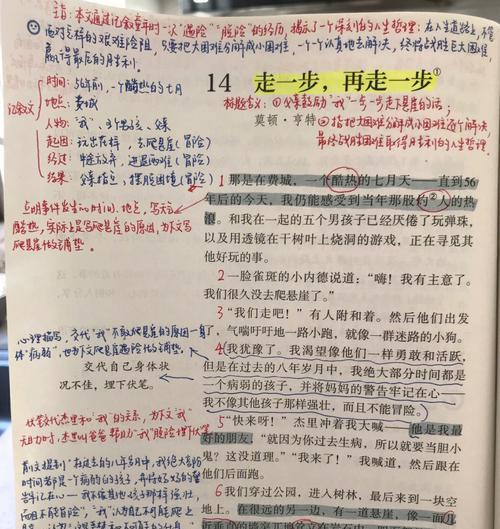 主旨:本文通过记叙童年时一次"遇险""脱险"的经历,揭示了一个深刻的人生哲理:在人生道路上,不管
面对怎样的艰难险阻,只要把大困难分解成小困难,一个一个认真地去解决,终将战胜巨大困难,
赢得最后的胜利。
记叙文
时间:56年前,一个酷热的七月
地点:费城
人物:"我"、
起因:玩出花样,去爬悬崖(冒险)
经过:中途放弃,进退两难(冒险)
结果:父亲指点,摆脱困境(冒险)
14 走一步,再走一步①
标题含义:①父亲鼓励"我"一步一步走下悬崖的话;
莫顿·亨特
②指把大困难分解成小困难逐个解决,
最终战胜困难取得胜利的人生哲理。
1 那是在费城,一个酷热的七月天——直到56
年后的今天,我仍能感受到当年那股灼②人的热
浪。和我在一起的五个男孩子已经厌倦了玩弹珠,
以及用透镜在干树叶上烧洞的游戏,正在寻觅其
他好玩的事。
点明事件发生的时间、地点,写天气
酷热,实际上是写爬悬崖的原因,为下文写
爬悬崖作铺垫。
2 一脸雀斑的小内德说道:"嗨!我有主意了。
我们很久没去爬悬崖了。"
3 "我们走吧!"有人附和着。然后他们出发
了,气喘吁吁地一路小跑,就像一群迷路的小狗。
4 我犹豫了。我渴望像他们一样勇敢和活跃,
但是在过去的八年岁月中,我绝大部分时间都是
一个病弱的孩子,并将妈妈的警告牢记在心——
我不像其他孩子那样强壮,而且不能冒险。
心理描写,交代"我"不敢爬悬崖的原因——身
体"病弱",也为下文爬悬崖遇险作铺垫。
交代自己身体状
况不佳,埋下伏笔。
5 "快来呀!"杰里冲着我大喊——他是我最
好的朋友,"就因为你过去生病,所以就要当胆小
鬼?这没道理。""我来了!"我喊道,然后跟在
他们后面跑。
伏笔交代杰里和"我"的关系,为下文"我"
6 我们穿过公园,进入树林,最后来到一块空
地上。在很远的另一边,有一道悬崖,像一面
前文提到"在过去的八年岁月中,我绝大部分
时间都是一个病弱的孩子,
牢记在心——我不像其他孩子那样强壮,
而且不能冒险",